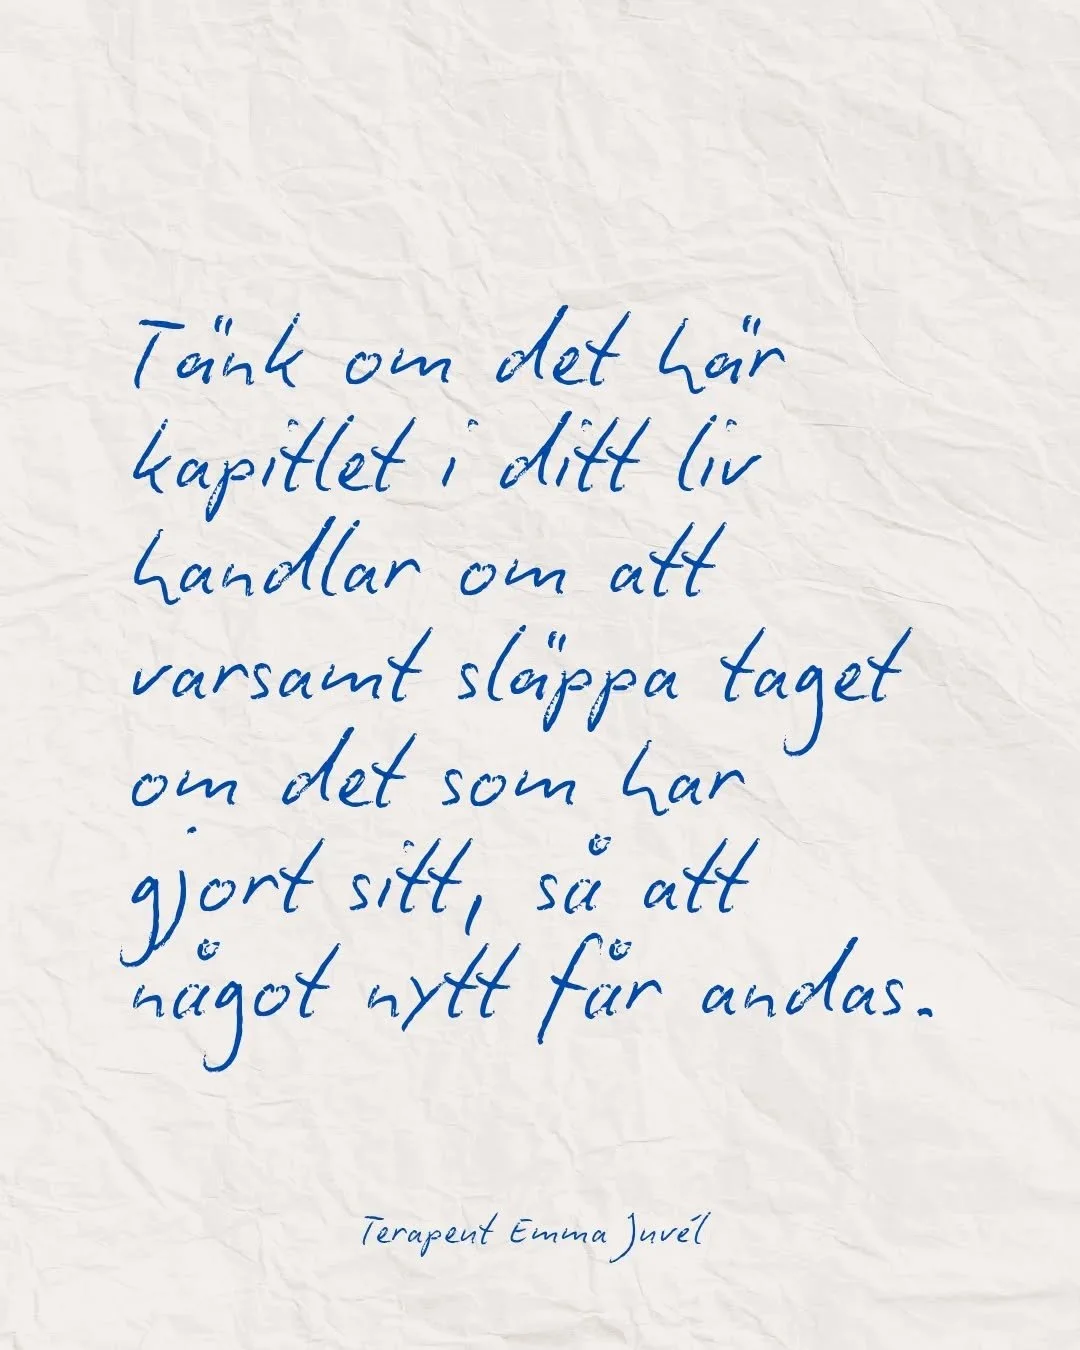 Tänk om det här
kapitlet i ditt liv
handlar om att
varsamt släppa taget
om det som har
gjort sitt, så att
något nytt får andas.
Terapeut Emma Juvél